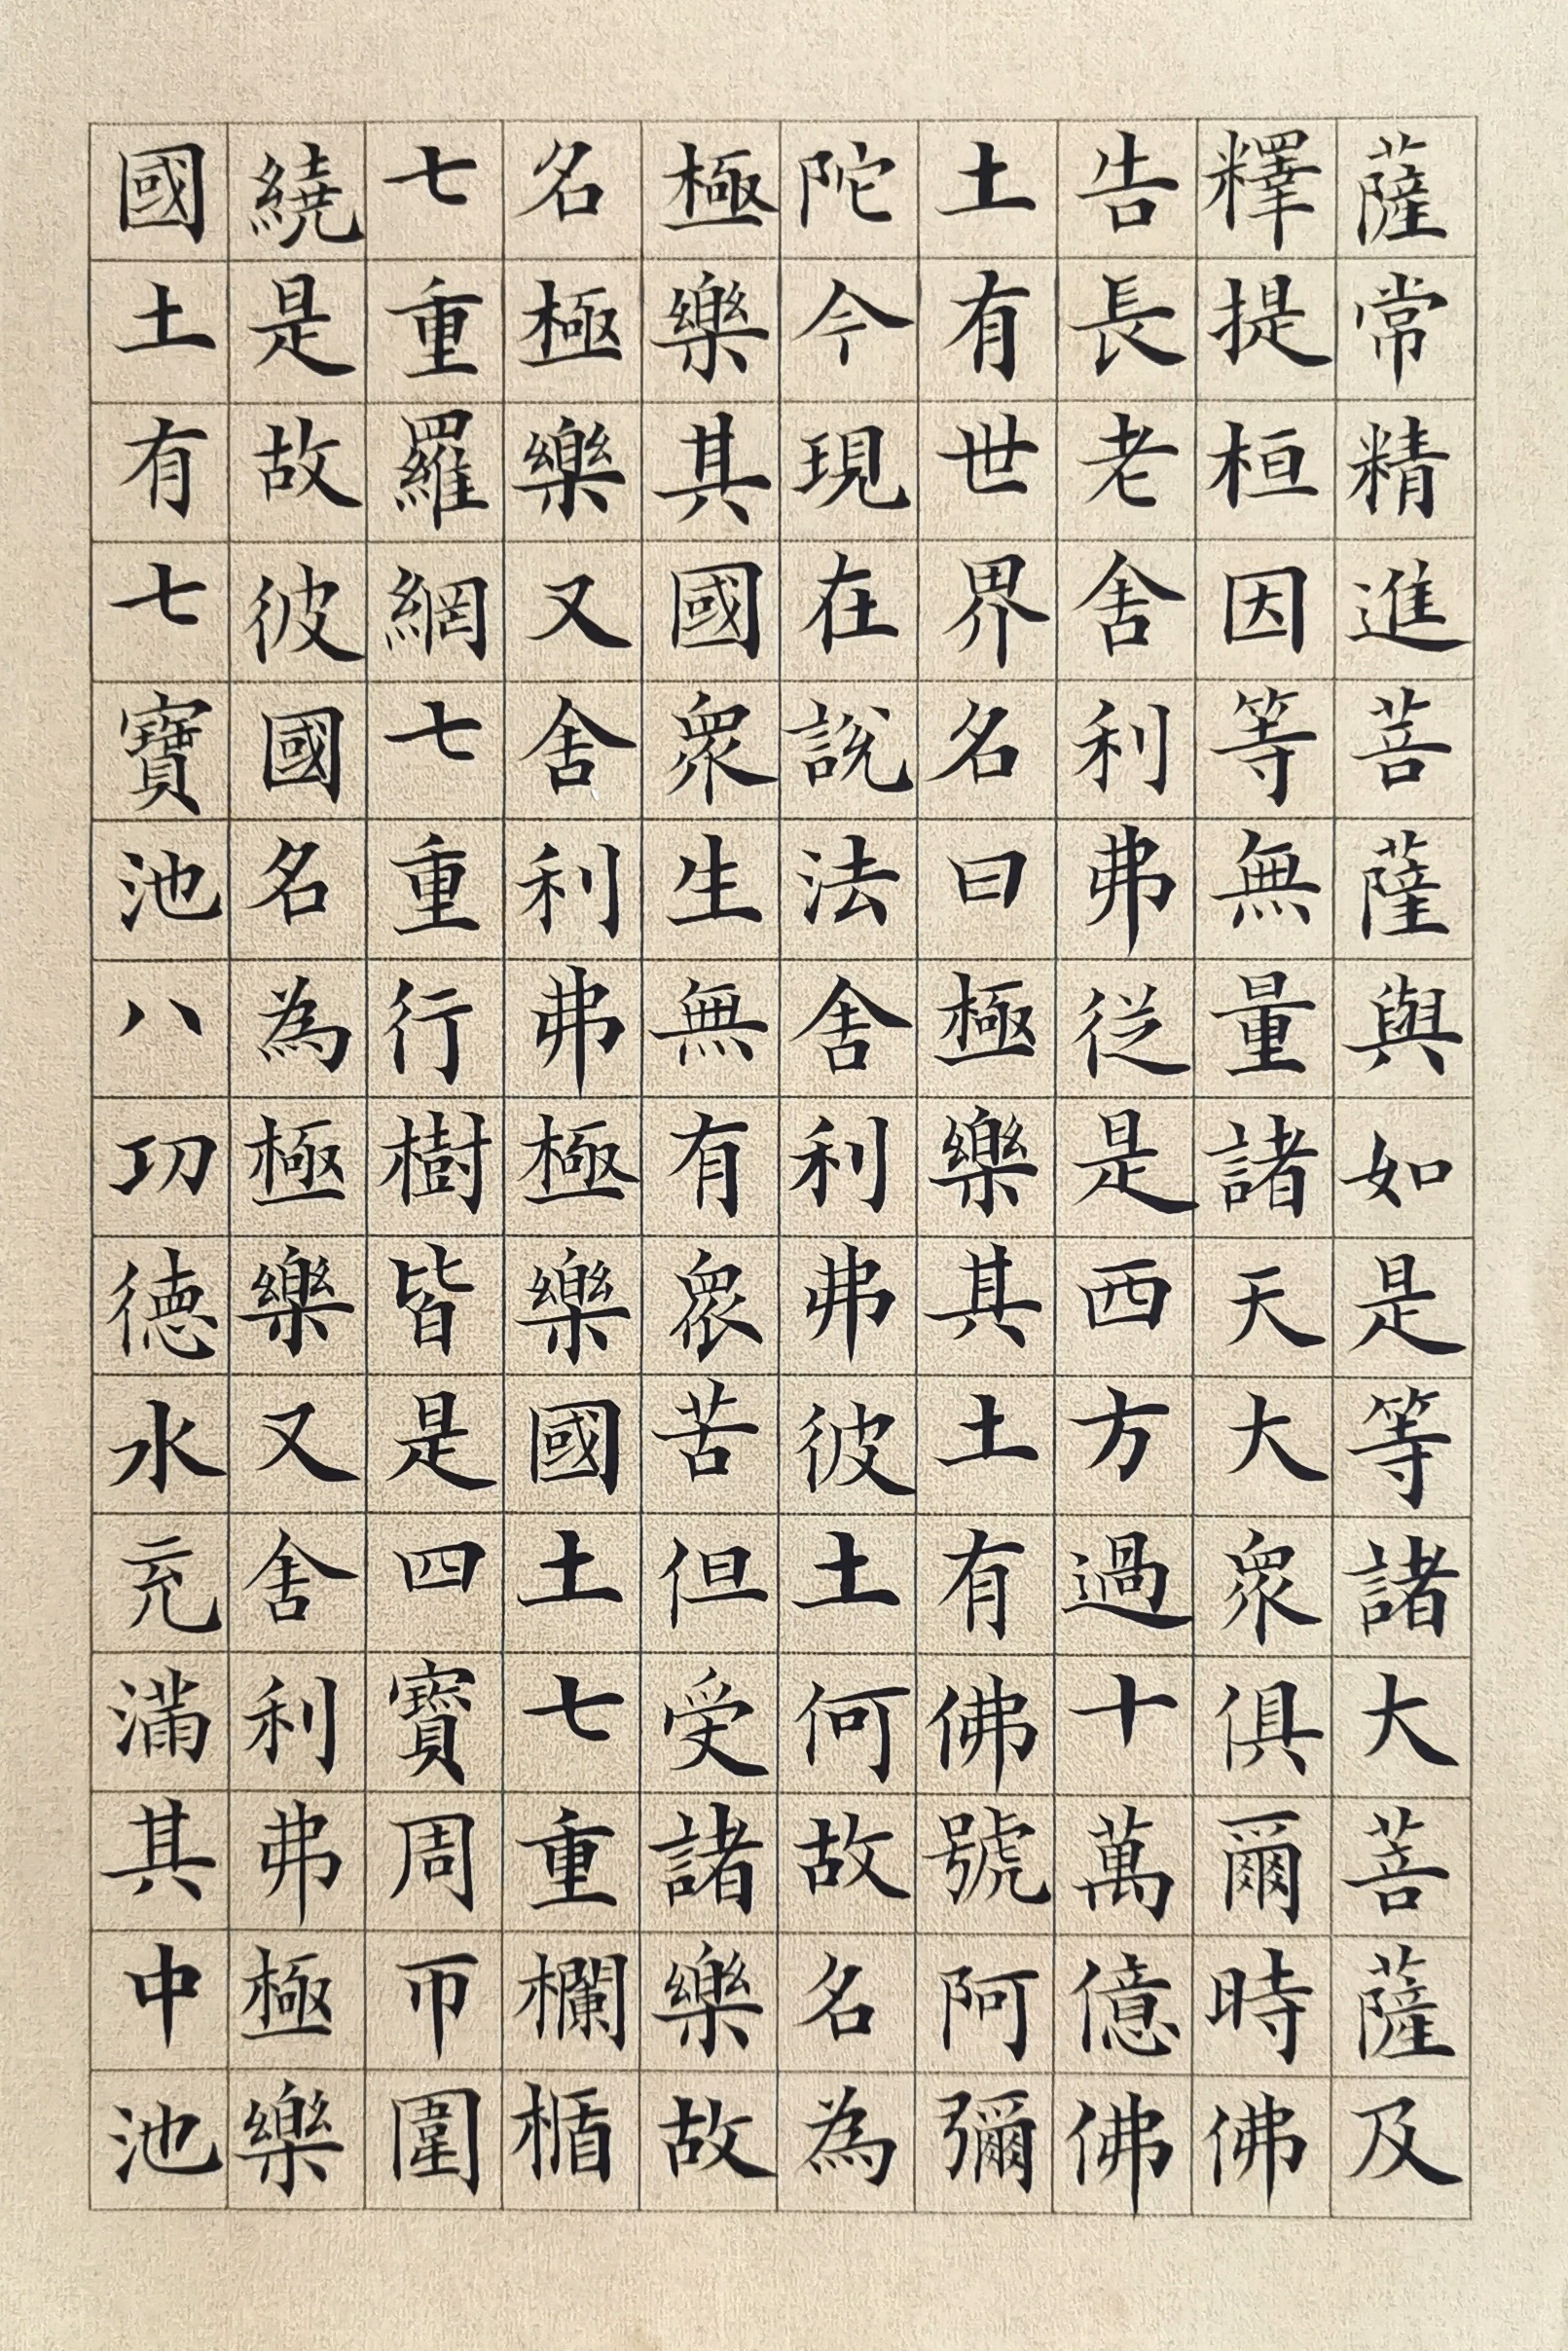 薩常精進菩薩與如是等諸大菩薩及
釋提桓因等無量諸天大眾俱爾時佛
告長老舍利弗從是西方過十萬億佛
土有世界名曰極樂其土有佛號阿彌
陀今現在說法舍利弗彼土何故名為
極樂其國眾生無有眾苦但受諸樂故
名極樂又舍利弗極樂國土七重欄楯
七重羅網七重行樹皆是四寶周帀圍
繞是故彼國名為極樂又舍利弗極樂
國土有七寶池八功德水充滿其中池